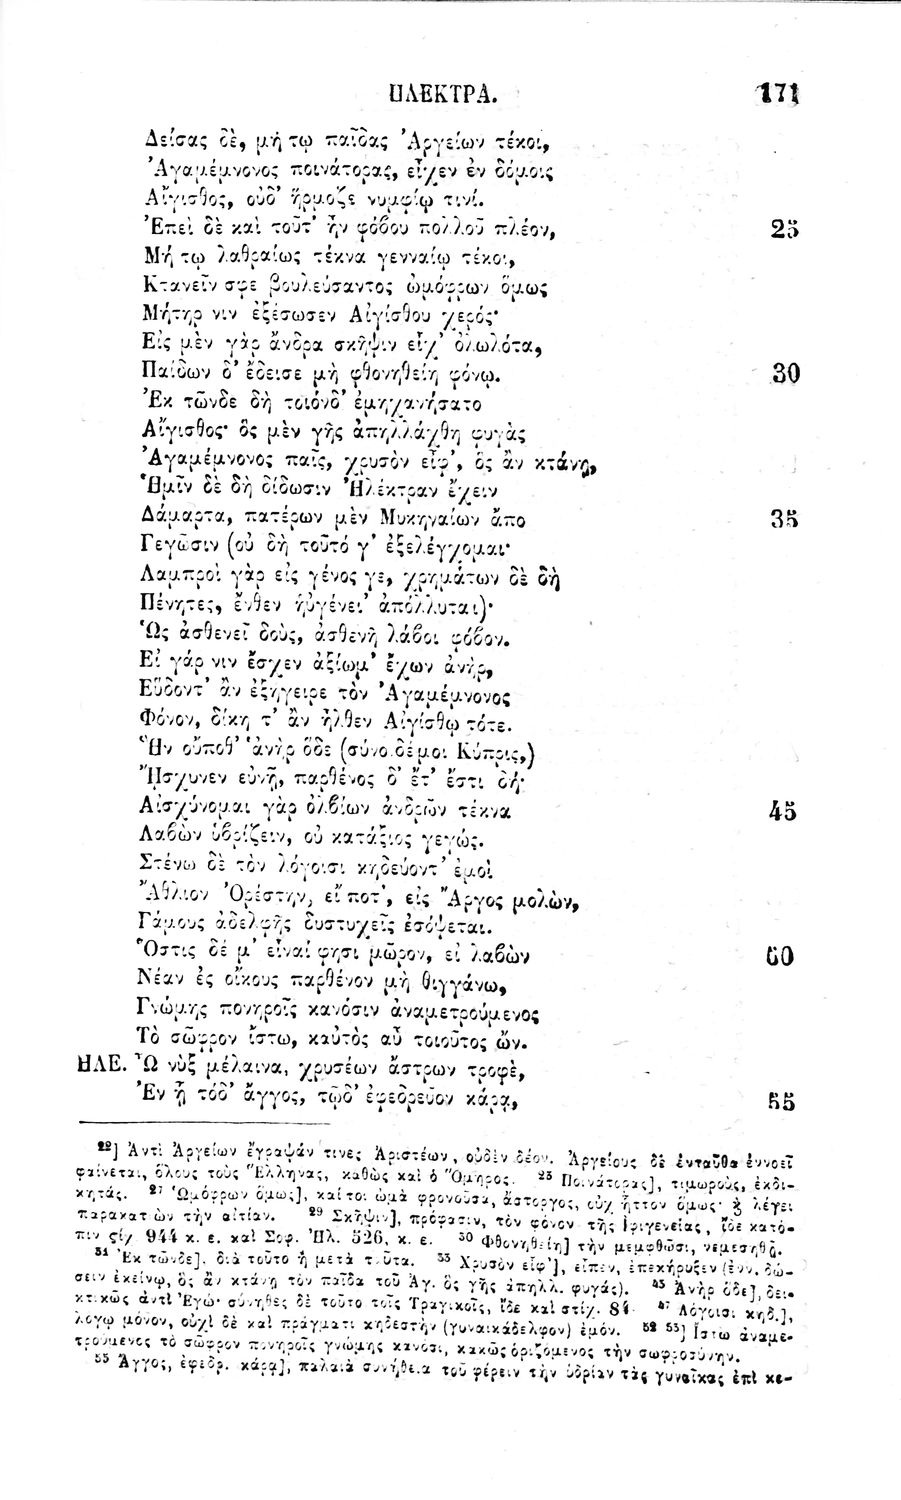 ΗΛΕΚΤΡΑ. 171
Δείσας δὲ, μή τῳ παῖδας Ἀργείων τέκοι,
Ἀγαμέμνονος ποινάτορας, εἶχεν ἐν δόμοις
Αἴγισθος, οὐδ' ἥρμοζε νυμφίῳ τινί.
Ἐπεὶ δὲ καὶ τοῦτ' ἦν φόβου πολλοῦ πλέον, 25
Μή τῳ λαθραίως τέκνα γενναίῳ τέκοι,
Κτανεῖν σφε βουλεύσαντος ὠμόφρων ὅμως
Μήτηρ νιν ἐξέσωσεν Αἰγίσθου χερός·
Εἰς μὲν γὰρ ἄνδρα σκῆψιν εἶχ' ὀλωλότα,
Παίδων δ' ἔδεισε μὴ φθονηθείη φόνῳ. 30
Ἐκ τῶνδε δὴ τοιόνδ' ἐμηχανήσατο
Αἴγισθος· ὃς μὲν γῆς ἀπηλλάχθη φυγὰς
Ἀγαμέμνονος παῖς, χρυσὸν εἶφ', ὃς ἂν κτάνῃ,
Ἡμῖν δὲ δὴ δίδωσιν Ἠλέκτραν ἔχειν
Δάμαρτα, πατέρων μὲν Μυκηναίων ἄπο 35
Γεγῶσιν (οὐ δὴ τοῦτό γ' ἐξελέγχομαι·
Λαμπροὶ γὰρ εἰς γένος γε, χρημάτων δὲ δὴ
Πένητες, ἔνθεν ηὑγένει' ἀπόλλυται)·
Ὡς ἀσθενεῖ δοὺς, ἀσθενῆ λάβοι φόβον.
Εἰ γάρ νιν ἔσχεν ἀξίωμ' ἔχων ἀνὴρ,
Εὕδοντ' ἂν ἐξήγειρε τὸν Ἀγαμέμνονος
Φόνον, δίκη τ' ἂν ἦλθεν Αἰγίσθῳ τότε.
Ἣν οὔποθ' ἁνὴρ ὅδε (σύνοιδέ μοι Κύπρις,)
ᾜσχυνεν εὐνῇ, παρθένος δ' ἔτ' ἔστι δή·
Αἰσχύνομαι γὰρ ὀλβίων ἀνδρῶν τέκνα 45
Λαβὼν ὑβρίζειν, οὐ κατάξιος γεγώς.
Στένω δὲ τὸν λόγοισι κηδεύοντ' ἐμοὶ
Ἄθλιον Ὀρέστην, εἴ ποτ', εἰς Ἄργος μολὼν,
Γάμους ἀδελφῆς δυστυχεῖς ἐσόψεται.
Ὅστις δέ μ' εἶναί φησι μῶρον, εἰ λαβὼν 50
Νέαν ἐς οἴκους παρθένον μὴ θιγγάνω,
Γνώμης πονηροῖς κανόσιν ἀναμετρούμενος
Τὸ σῶφρον ἴστω, καὐτὸς αὖ τοιοῦτος ὤν.
ΗΛΕ. Ὦ νὺξ μέλαινα, χρυσέων ἄστρων τροφὲ,
Ἐν ᾗ τόδ' ἄγγος, τῷδ' ἐφεδρεῦον κάρᾳ, 55
²²] Ἀντὶ Ἀργείων ἔγραψάν τινες Ἀριστέων, οὐδὲν δέον. Ἀργείους δὲ ἐνταῦθα ἐννοεῖ
φαίνεται, ὅλους τοὺς Ἕλληνας, καθὼς καὶ ὁ Ὅμηρος. ²³ Ποινάτορας], τιμωροὺς, ἐκδι-
κητάς. ²⁷ Ὠμόφρων ὅμως], καίτοι ὠμὰ φρονοῦσα, ἄστοργος, οὐχ ἧττον ὅμως· ϗ λέγει
παρακατιὼν τὴν αἰτίαν. ²⁹ Σκῆψιν], πρόφασιν, τὸν φόνον τῆς Ἰφιγενείας, ἴδε κατό-
πιν ςίχ 944 κ. ε. καὶ Σοφ. Ἠλ. 526, κ. ε. ³⁰ Φθονηθείη] τὴν μεμφθῶσι, νεμεσηθῇ.
³¹ Ἐκ τῶνδε]. διὰ τοῦτο ἢ μετὰ ταῦτα. ³³ Χρυσὸν εἶφ'], εἶπεν, ἐπεκήρυξεν (ἐνν. δώ-
σειν ἐκείνῳ, ὃς ἂν κτάνῃ τὸν παῖδα τοῦ Ἀγ. ὃς γῆς ἀπηλλ. φυγάς). ⁴³ Ἀνὴρ ὅδε], δει-
κτικῶς ἀντὶ Ἐγώ· σύνηθες δὲ τοῦτο τοῖς Τραγικοῖς, ἴδε καὶ στίχ. 84 ⁴⁷ Λόγοισι κηδ.],
λόγῳ μόνον, οὐχὶ δὲ καὶ πράγματι κηδεστὴν (γυναικάδελφον) ἐμόν. ⁵² ⁵³] Ἴστω ἀναμε-
τρούμενος τὸ σῶφρον πονηροῖς γνώμης κανόσι, κακῶς ὁριζόμενος τὴν σωφροσύνην.
⁵⁵ Ἄγγος, ἐφεδρ. κάρᾳ], παλαιὰ συνήθεια τοῦ φέρειν τὴν ὑδρίαν τὰς γυναῖκας ἐπὶ κε-